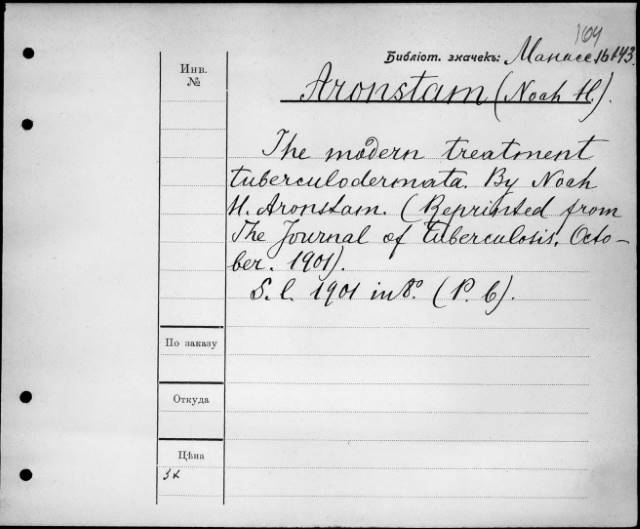 169
Библіот. значекъ: Манассе 16143.
Инв.
№
Aronstam (Noah H.).
The modern treatment
tuberculodermata. By Noah
H. Aronstam. (Reprinted from
The Journal of tuberculosis. Octo-
ber. 1901).
S. l. 1901 in 8º. (P. 6).
По заказу
Откуда
Цѣна